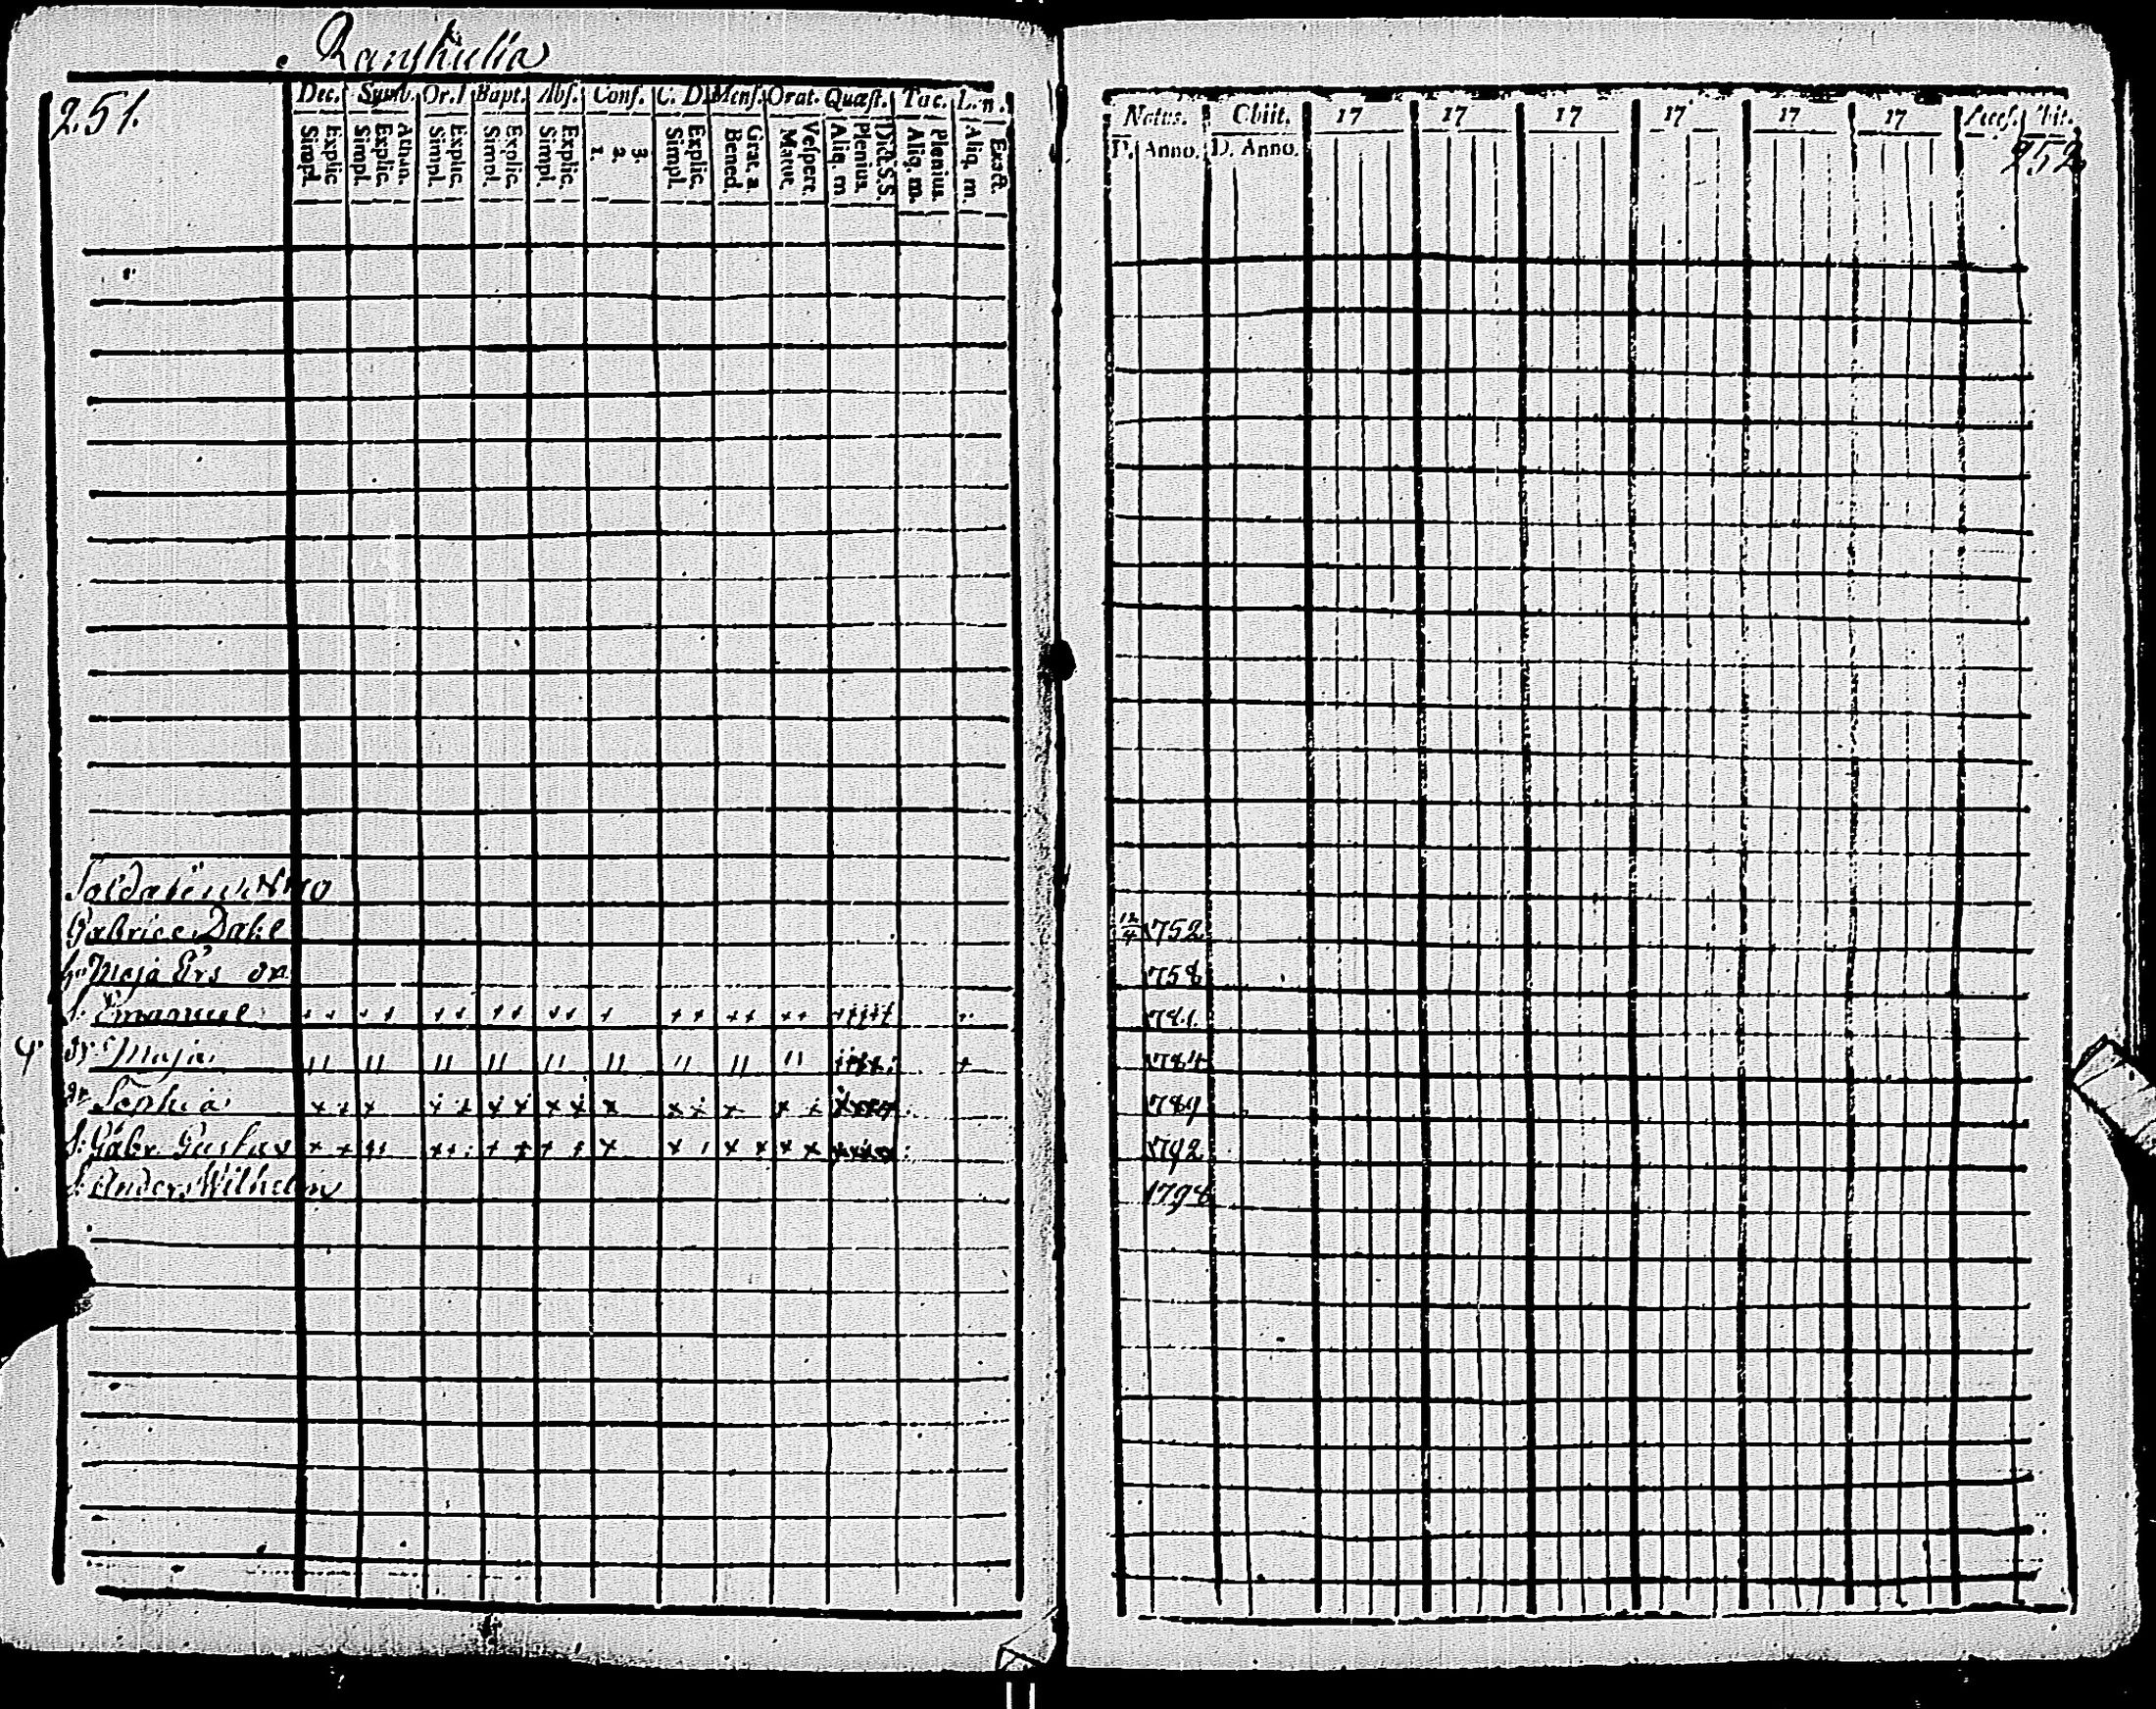 Ranskulla
251.
Dec. Symb. Or. Bapt. Abs. Conf. C. D. Mens. Orat. Quæst. Tac. L. n.
Simpl. Explic. Simpl. Explic. Athan. Simpl. Explic. Simpl. Explic. Simpl. Explic. 1. 2. 3. Simpl. Explic. Bened. Grat. a Matut. Vespere. Aliq. m Plenius. Dict. S.S. Aliq. m. Plenius. Aliq. m. Exact.
Soldaten
Gabriel Dahl
h. Maja Ers dr
S. Emanuel
dr Maja
dr Sophia
S. Gabr. Gustaf
S. Anders Wilhelm
Natus. Obiit. 17 17 17 17 17 17 Access. bit.
D. Anno. D. Anno.
252
12/4 1752
1758
1781
1784
1789
1792
1798